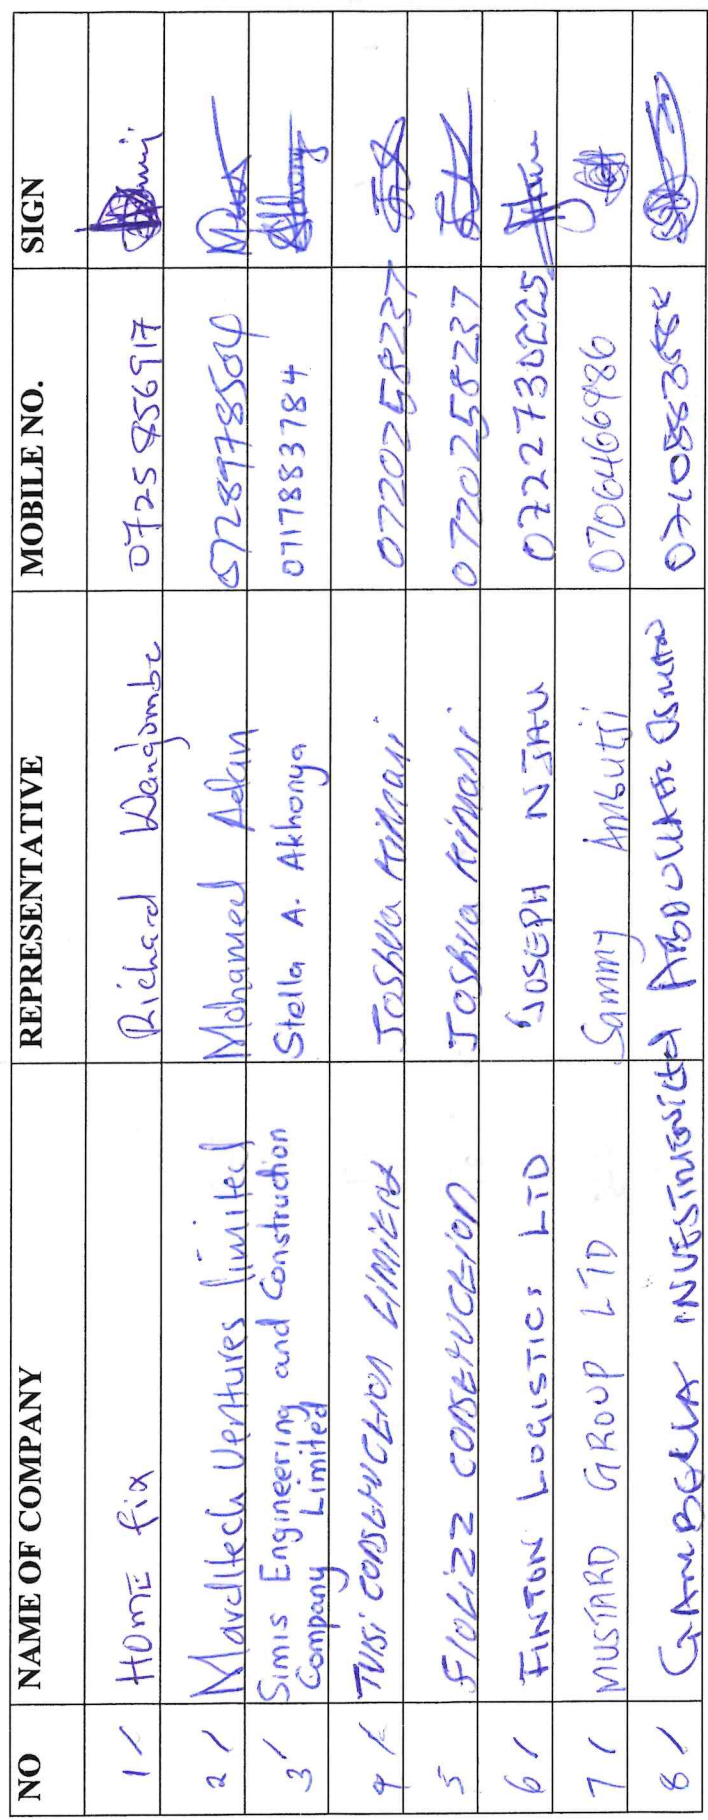 NO NAME OF COMPANY REPRESENTATIVE MOBILE NO. SIGN
1 / HOME fix Richard Wangombe 0725 856917
2 / Marditech Ventures limited Mohamed Adan 0728978504
3 / Simis Engineering and Construction Company Limited Stella A. Akhonya 0717883784
4 / construction LIMITED Joshua Kimani 0720258237
5 construction Joshua Kimani 0720258237
6 / FINTON LOGISTICS LTD JOSEPH NJAU 0722730225
7 / MUSTARD GROUP LTD Sammy Ambutsi 0706466986
8 / GAMBELLA INVESTMENT Ltd OSMAN